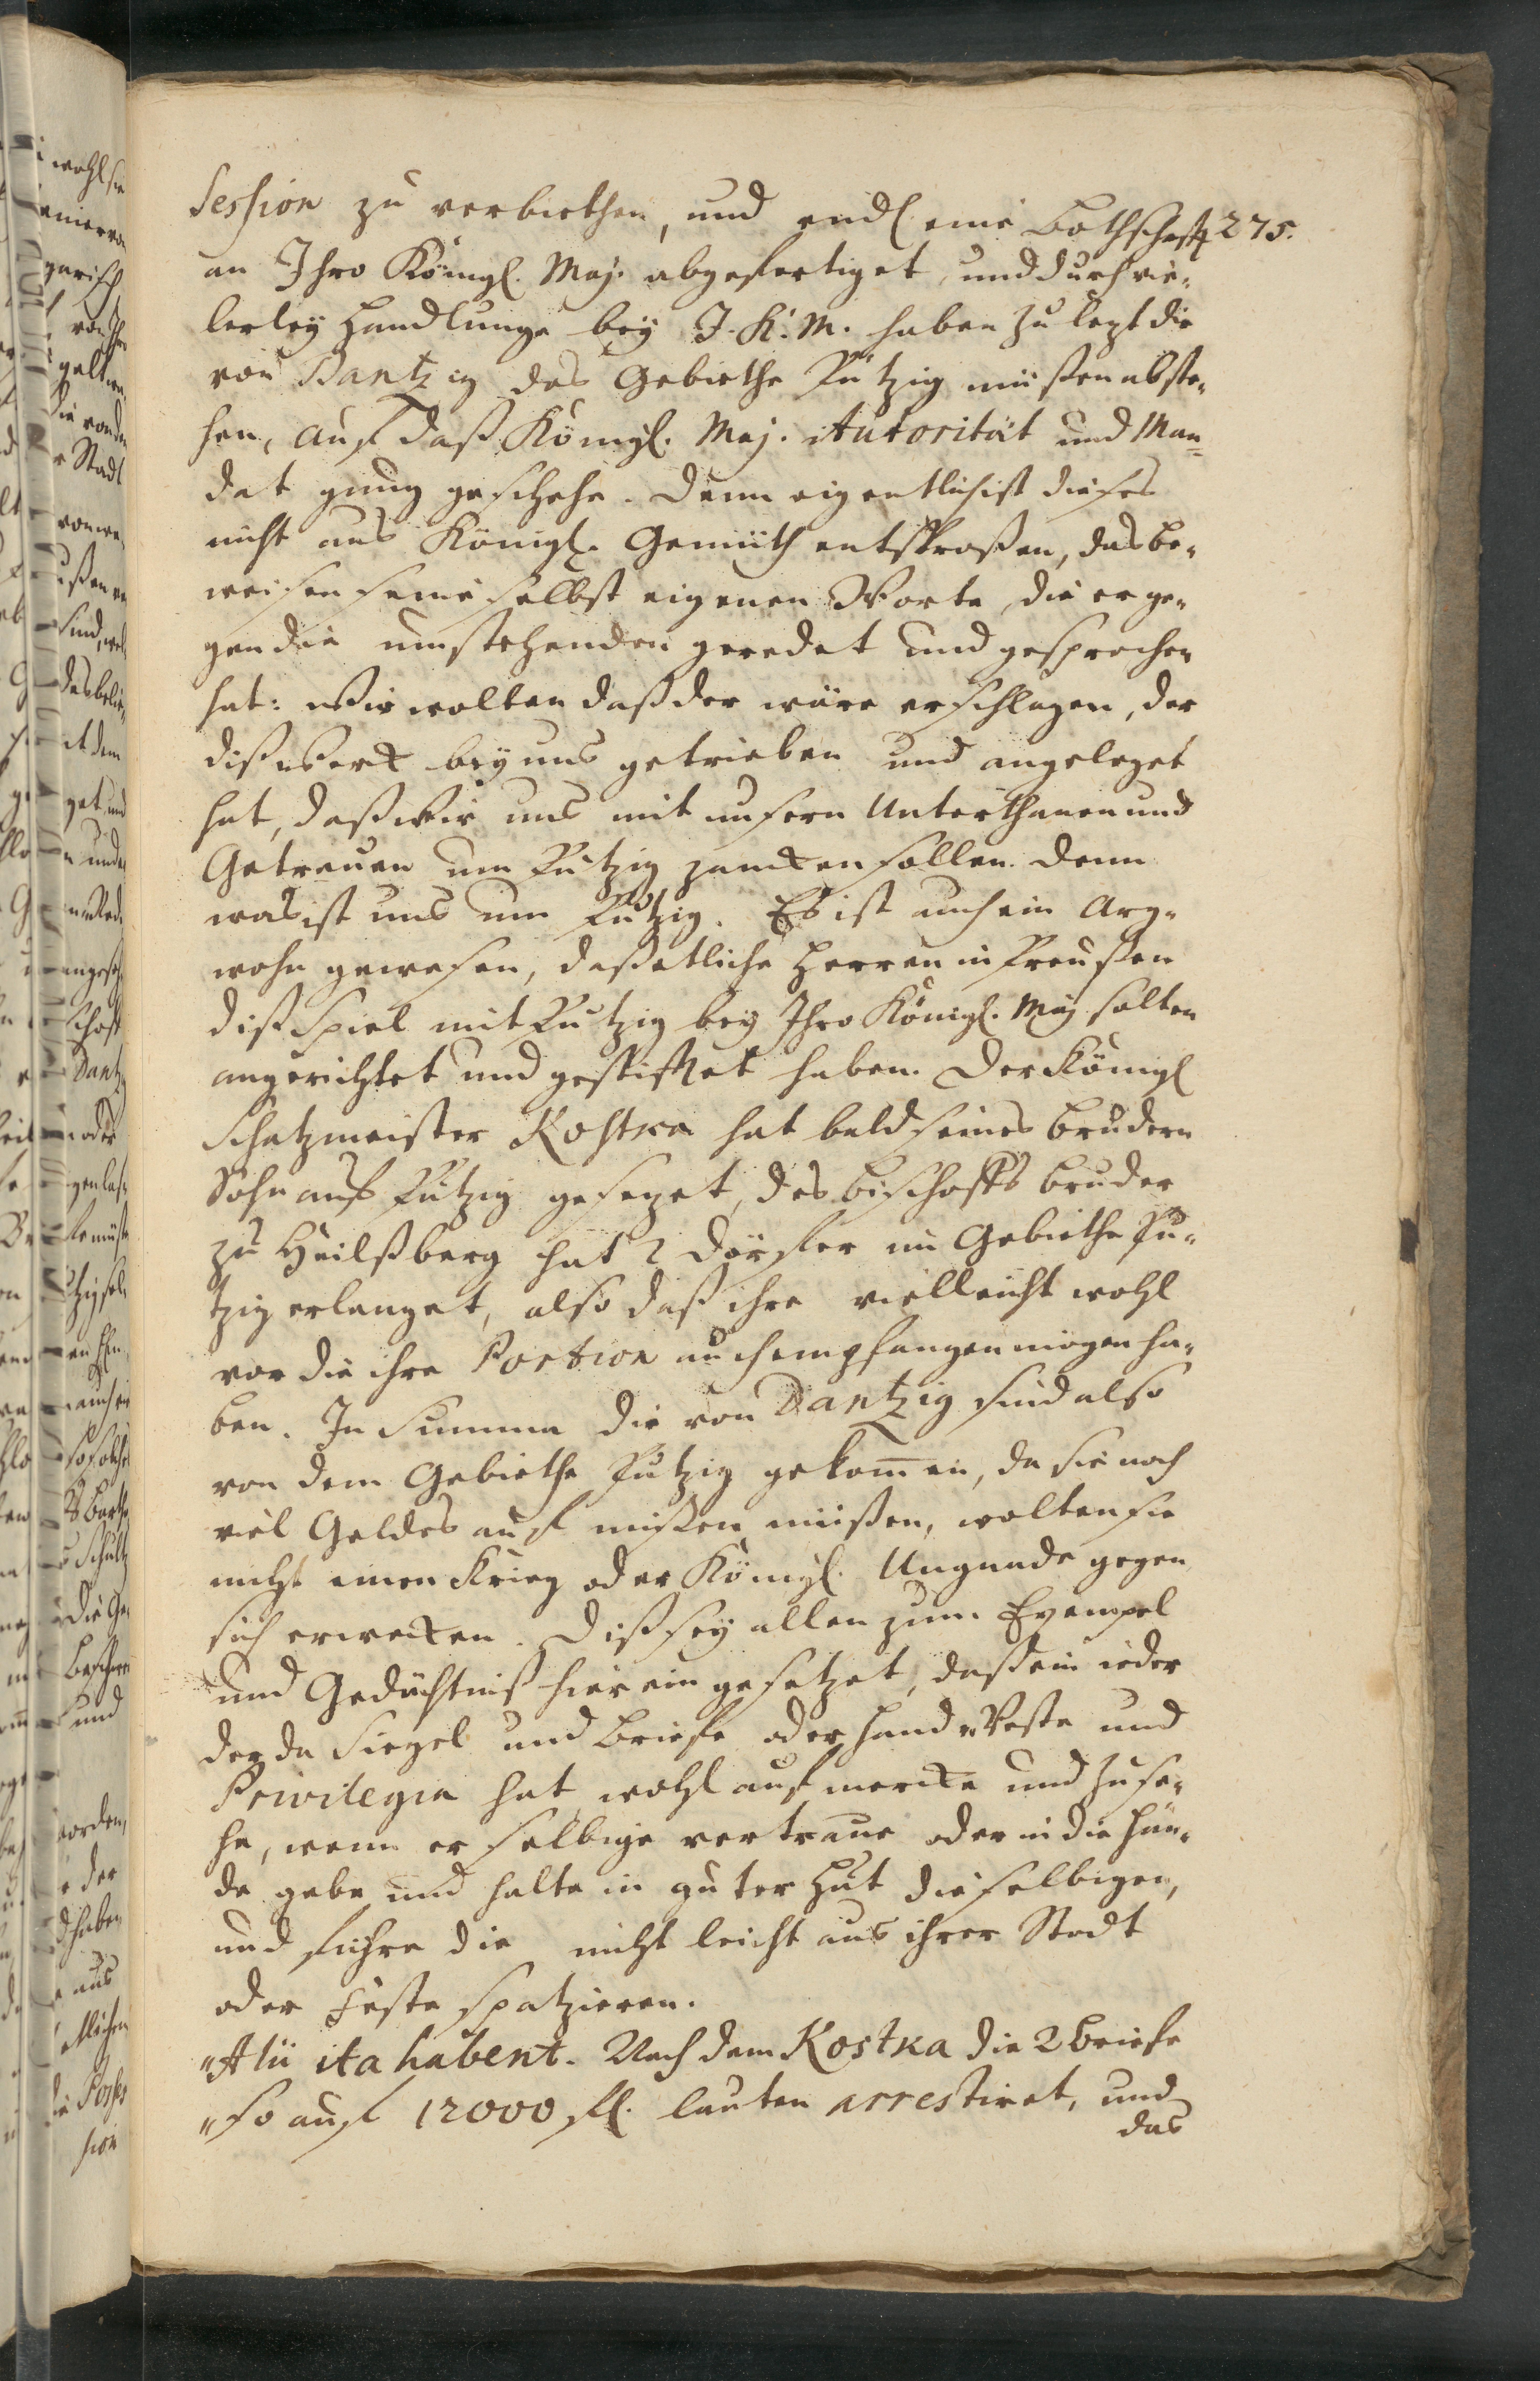 275.
session zu verbiethen, und endl. eine Bothschafft
an Ihro Königl. Maj. abgefertiget, und durch vie-
lerley Handlunge bey J. K. M. haben zu lezt die
von Dantzig das Gebiethe Putzig müßen abste-
hen, auf daß Königl. Maj. Autorität und Man-
dat gnug geschehe. Denn eigentlich ist dieses
nicht aus Königl. Gemüth entsproßen, das be-
weisen seine selbst eigenen Worte, die er ge-
gen die umstehenden geredet und gesprochen
hat: Wir wolten daß der wäre erschlagen, der
diß Werck bey uns getrieben und angeleget
hat, daß wir uns mit unsern Unterthanen und
Getreuen um Putzig zancken sollen. Denn
was ist uns um Putzig. Es ist auch ein Arg-
wohn gewesen, daß etliche Herren in Preußen
diß Spiel mit Putzig bey Ihro Königl. Maj. solten
angerichtet und gestifftet haben. Der Königl
Schatzmeister Kostka hat bald seines Brudern
Sohn auf Putzig gesezet, des Bischoffs Bruder
zu Heilßberg hat 2 Dörffer im Gebiethe Pu-
tzig erlanget, also daß ihre vielleicht wohl
vor die ihre Portion auch empfangen mögen ha-
ben. In Summa die von Dantzig sind also
von dem Gebiethe Putzig gekommen, da sie noch
viel Geldes auf mißen müßen, wolten sie
nicht einen Krieg oder Königl. Ungnade gegen
sich erwecken. Diß sey allen zum Exempel
und Gedächtniß hier ein gesetzet, daß ein ieder
der da Siegel und Briefe oder Hand-Veste und
Privilegia hat, wohl aufmercke und zuse-
he, wenn er selbige vertraue oder in die Hän-
de gebe und halte in guter Hut dieselbigen,
und führe die nicht leicht aus ihrer Stadt
oder Feste spatzieren.
"Alii ita habent. Nach dem Kostka die 2 Briefe
"so auf 12000 fl. lauten arrestiret, und
das